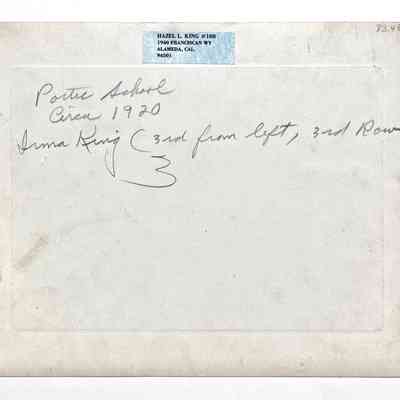 HAZEL L. KING #108
1900 FRANCISCAN WY
ALAMEDA, CAL.
94501
Porter School
Circa 1920
Irma King (3rd from left, 3rd Row